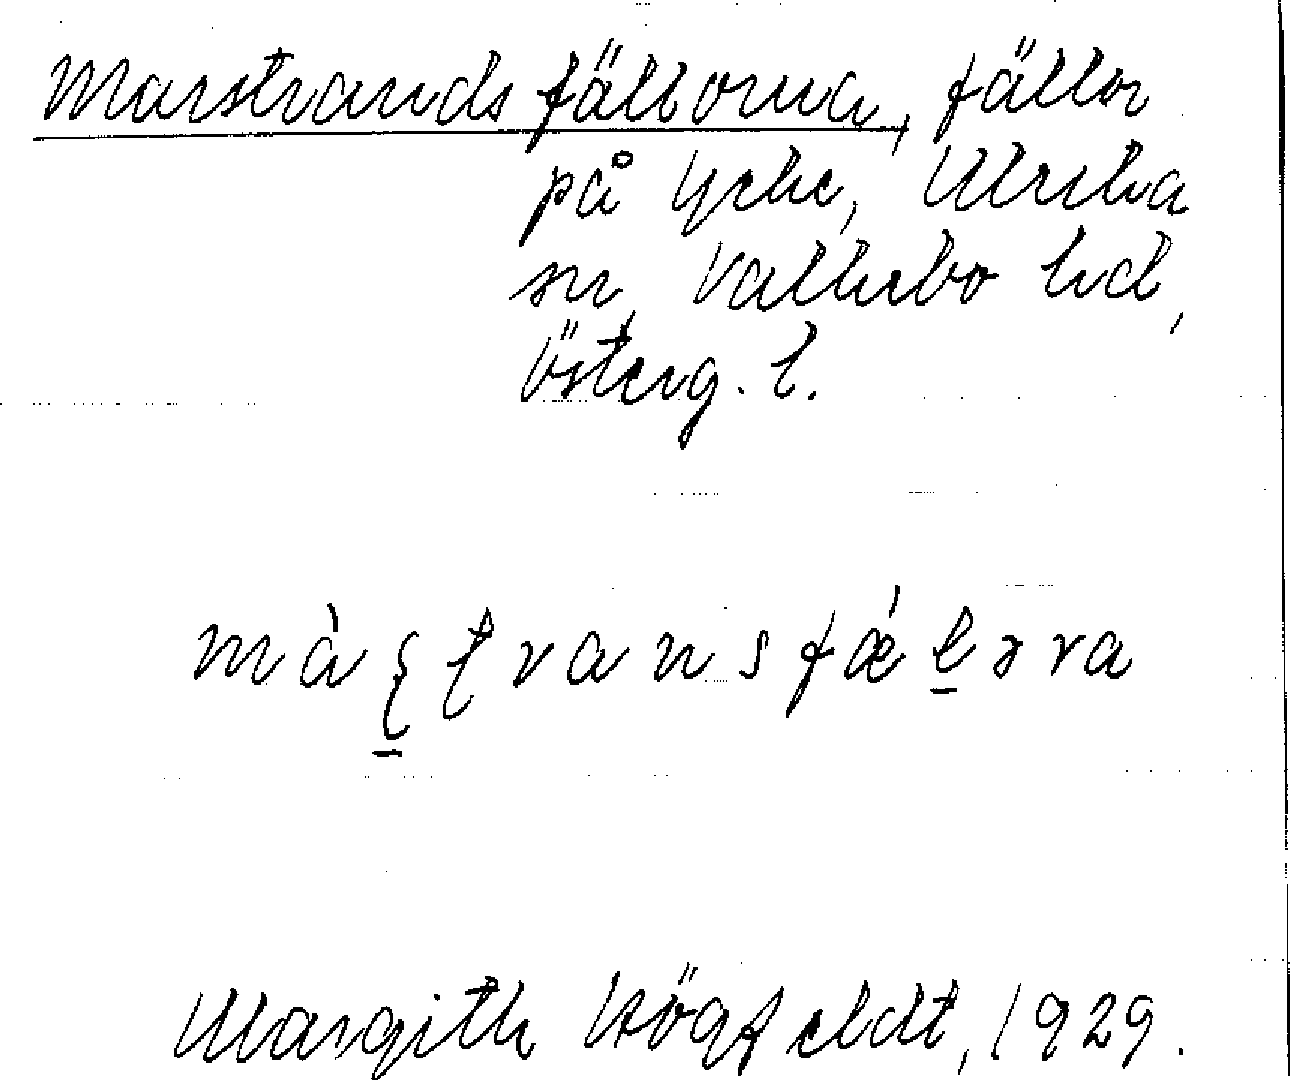 Marstrandsfällorna, fällor
på Ycke, Ulrika
sn, Valkebo hd,
Österg. l.
màʂʈransfǽl̠ɔra
Margith Högfeldt, 1929.